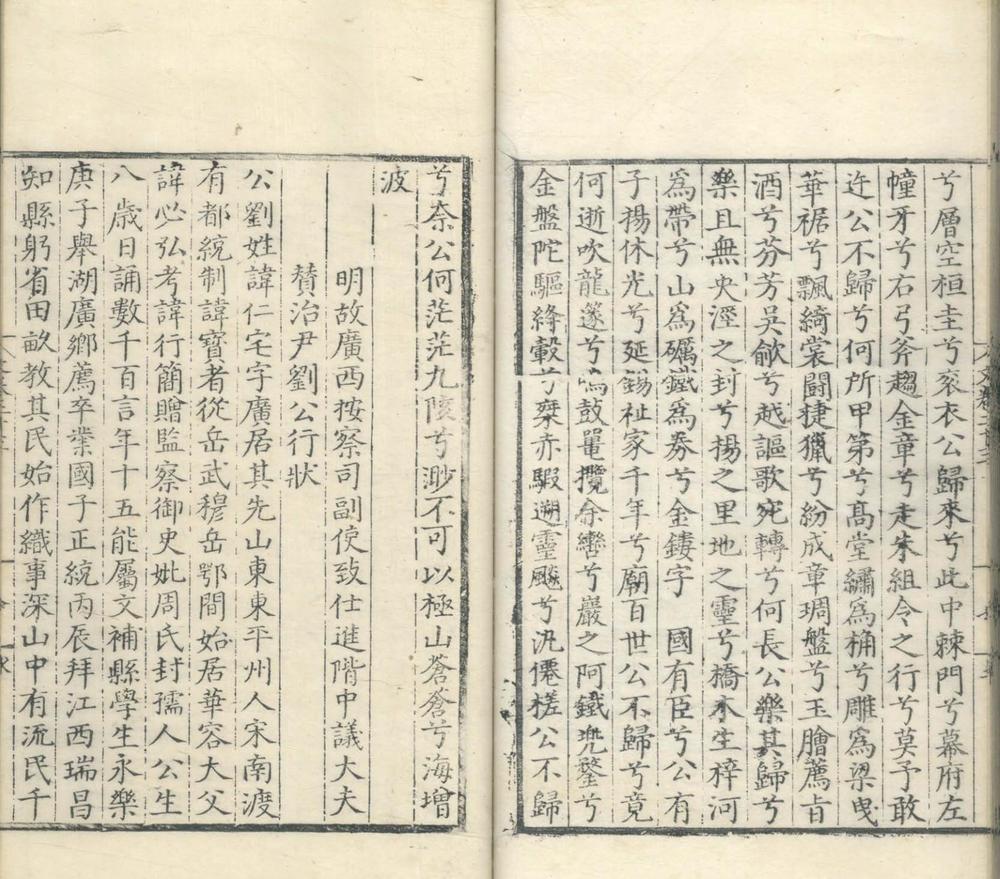 兮層空桓圭兮衮衣公歸來兮此中棘門兮幕府左
幢牙兮右弓斧趨金章兮走朱組令之行兮莫予敢
迕公不歸兮何所甲第兮髙堂繡爲桷兮雕爲梁曵
華裾兮飄綺裳鬭捷獵兮紛成章琱盤兮玉膾薦旨
酒兮芬芳吳歈兮越謳歌宛轉兮何長公樂其歸兮
樂且無央涇之封兮揚之里地之靈兮橋木生梓河
爲帶兮山爲礪鐵爲券兮金鏤字國有臣兮公有
子揚休光兮延錫祉家千年兮廟百世公不歸兮竟
何逝吹龍篴兮鳴鼓鼉攬余轡兮巖之阿鐵兠鍪兮
金盤陀驅絳轂兮椉赤騢遡靈飈兮汎僊槎公不歸
兮奈公何茫茫九陵兮渺不可以極山蒼蒼兮海增
波
明故廣西按察司副使致仕進階中議大夫
賛治尹劉公行狀
公劉姓諱仁宅字廣居其先山東東平州人宋南渡
有都統制諱寶者從岳武穆岳鄂間始居華容大父
諱必弘考諱行簡贈監察御史妣周氏封孺人公生
八歲日誦數千百言年十五能屬文補縣學生永樂
庚子舉湖廣鄉薦卒業國子正統丙辰拜江西瑞昌
知縣躬省田畝教其民始作織事深山中有流民千